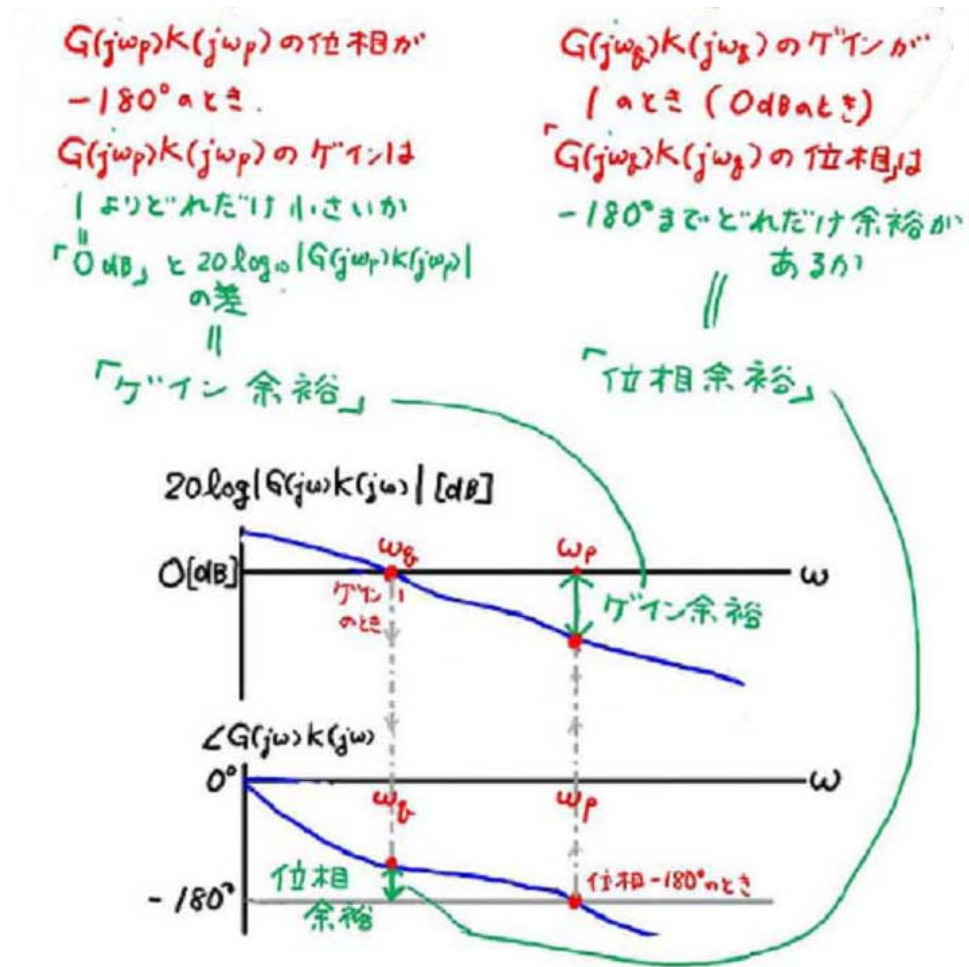 G(jωp)K(jωp)の位相が
-180°のとき.
G(jωp)K(jωp)のゲインは
1よりどれだけ小さいか
=
「0dB」と20log₁₀|G(jωp)K(jωp)|
の差
=
「ゲイン余裕」
G(jωg)K(jωg)のゲインが
1のとき(0dBのとき)
「G(jωg)K(jωg)の位相」は
-180°までどれだけ余裕が
あるか
=
「位相余裕」
20log|G(jω)K(jω)|[dB]
0[dB]
ωg
ωp
ω
ゲイン1
のとき
ゲイン余裕
∠G(jω)K(jω)
0°
ωg
ωp
ω
位相
余裕
位相-180°のとき
-180°